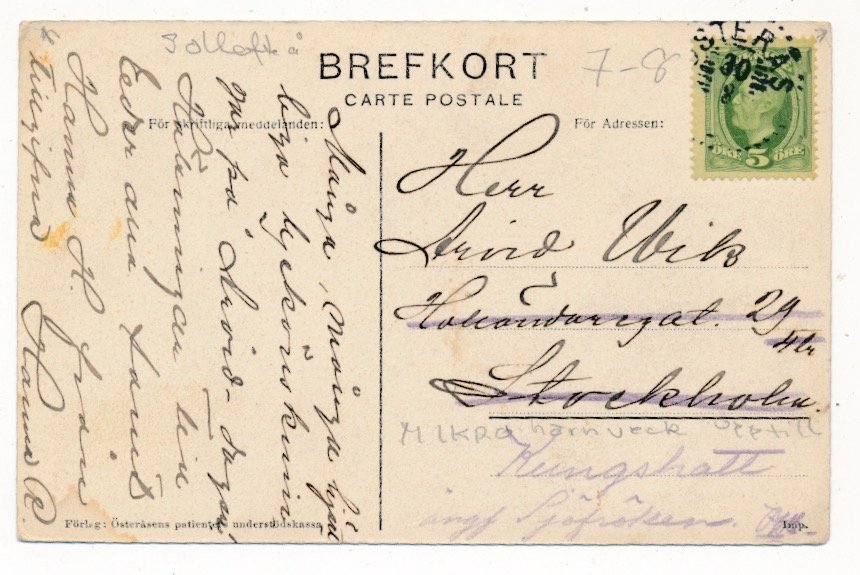 Sollefteå
BREFKORT
CARTE POSTALE
7-8
ÖSTERÅS
30
För skriftliga meddelanden:
För Adressen:
ÖRE 5 ÖRE
Många, många hjärt
liga lyckönsknin
gar på Arvid-dagen
Hälsningar till
Eder alla samt
Hamma H. från
tillgifna
Hanna
Herr
Arvid Wik
Holländargat. 29
4 tr
Stockholm.
Mikro hörnveck upptill
Kungshatt
ångf Sjöfröken.
Förlag: Österåsens patienters understödskassa
Imp.